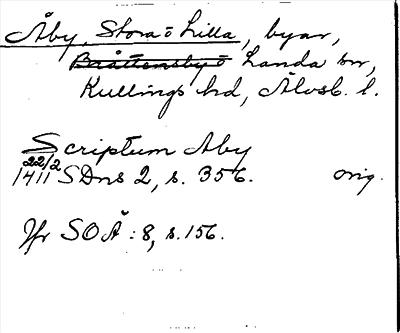 Åby, Stora o Lilla, byar,
Bråttensby o Landa snr,
Kullings hd, Älvsb. l.
Scriptum Aby
22/2
1411 SDns 2, s. 356. orig.
Jfr SOÄ : 8, s. 156.